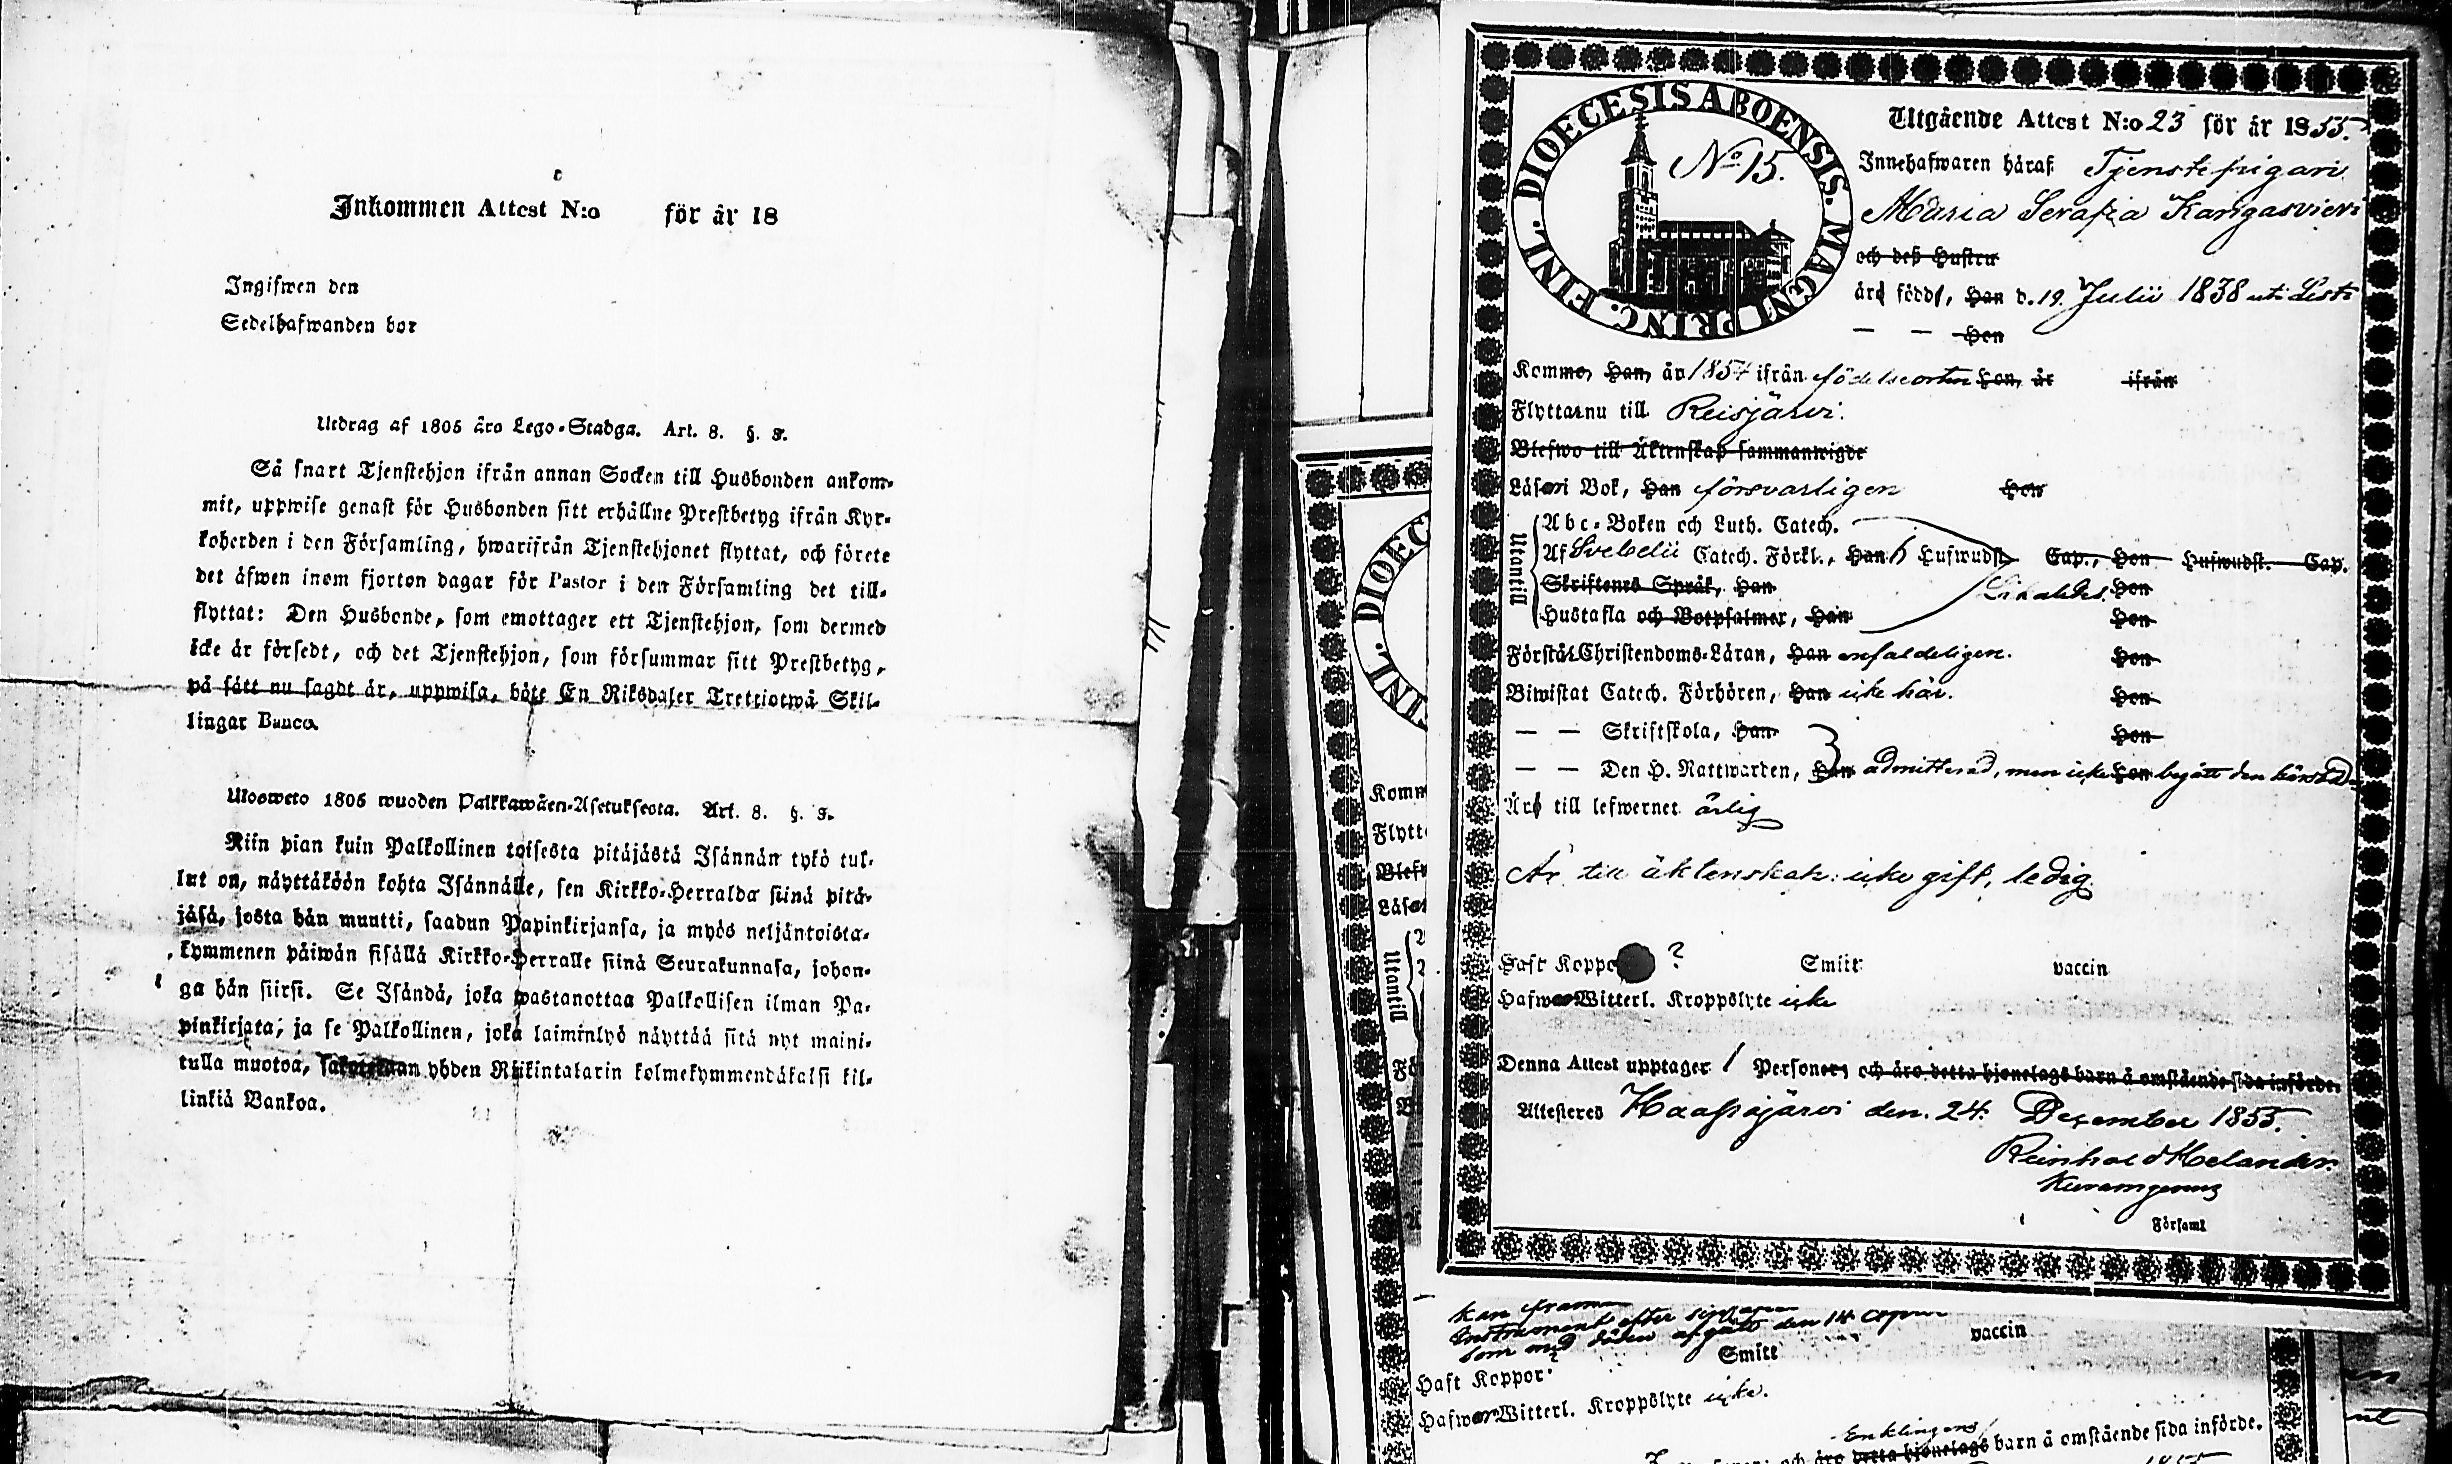 Inkommen Attest N:o för år 18
Ingifwen den
Sedelhafwanden bor
Utdrag af 1805 års Lego-Stadga. Art. 8. §. 3.
Så snart Tjenstehjon ifrån annan Socken till Husbonden ankom-
mit, uppwise genast för Husbonden sitt erhållne Prestbetyg ifrån Kyr-
koherden i den Församling, hwarifrån Tjenstehjonet flyttat, och förete
det äfwen inom fjorton dagar för Pastor i den Församling det till-
flyttat: Den Husbonde, som emottager ett Tjenstehjon, som dermed
icke är försedt, och det Tjenstehjon, som försummar sitt Prestbetyg,
på sått nu sagdt är, uppwisa, böte En Riksdaler Trettiotwå Skil-
lingar Banco.
Ulosweto 1805 wuoden Palkkawäen-Asetuksesta. Art. 8. §. 3.
Niin pian kuin Palkollinen toisesta pitäjästä Isännän tykö tul-
lut on, näyttäköön kohta Isännälle, sen Kirkko-Herralda siinä pitä-
jäsä, josta hän muutti, saadun Papinkirjansa, ja myös neljäntoista-
kymmenen päiwän sisällä Kirkko-Herralle siinä Seurakunnasa, johon-
ga hän siirsi. Se Isändä, joka wastanottaa Palkollisen ilman Pa-
pinkirjata, ja se Palkollinen, joka laiminlyö näyttää sitä nyt maini-
tulla muotoa, sakoitetaan yhden Riikintalarin kolmekymmendäkaksi kil-
linkiä Bankoa.
DIOECESIS ABOENSIS. MAGNI PRINC. FINL.
No 15.
Utgående Attest N:o 23 för år 1855.
Innehafwaren häraf Tjenstepigan
Maria Serafia Kangasvieri
och deß Hustru
äro född, Han d. 19 Julii 1838 uti Lesti
— — Hon
Kommo, Han, år 1854 ifrån födelseorten Hon, år ifrån
Flyttar nu till Reisjärvi.
Blefwo till Äktenskap sammanwigde
Läser i Bok, Han försvarligen Hon
Utantill
Abc-Boken och Luth. Catech.
Af Svebelii Catech. Förkl., Han 6 Hufwudst. Cap., Hon Hufwudst. Cap.
Skriftenes Språk, Han Hon
Hustafla och Botpsalmer, Han Hon
Förstår Christendoms-Läran, Han enfaldeligen. Hon
Biwistat Catech. Förhören, Han icke här. Hon
— — Skriftskola, Han Hon
— — Den H. Nattwarden, Han admitterad, men icke Hon begått den härstädes
Äro till lefwernet ärlig
Är till äktenskap: icke gift, ledig
Haft Koppor ? Smitt vaccin
Hafwer Witterl. Kroppslyte icke
Denna Attest upptager 1 Personer; och äro detta hjonelags barn å omstående sida införde.
Attesteres Haapajärvi den 24 December 1855.
Reinhold Helander.
Församl
DIOEC
INL.
Komm
Flytt
Blefw
Läse
Utantill
Fö
kan
Instrument efter
som med döden afgått den 14
Haft Koppor Smitt vaccin
Hafwer Witterl. Kroppslyte icke.
Enklingens
och äro detta hjonelags barn å omstående sida införde.